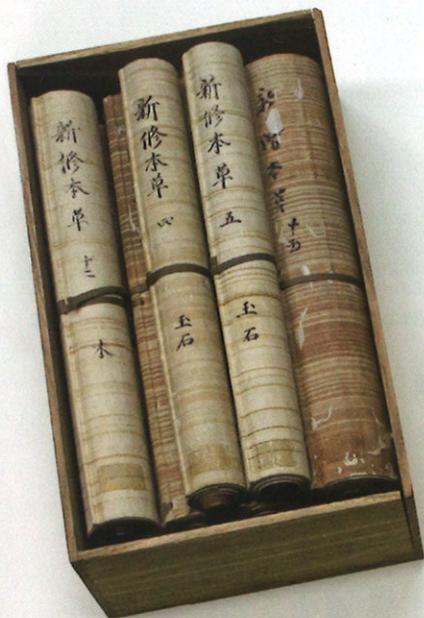 新修本草 十二 木
新修本草 四 玉石
新修本草 五 玉石
新修本草 十五